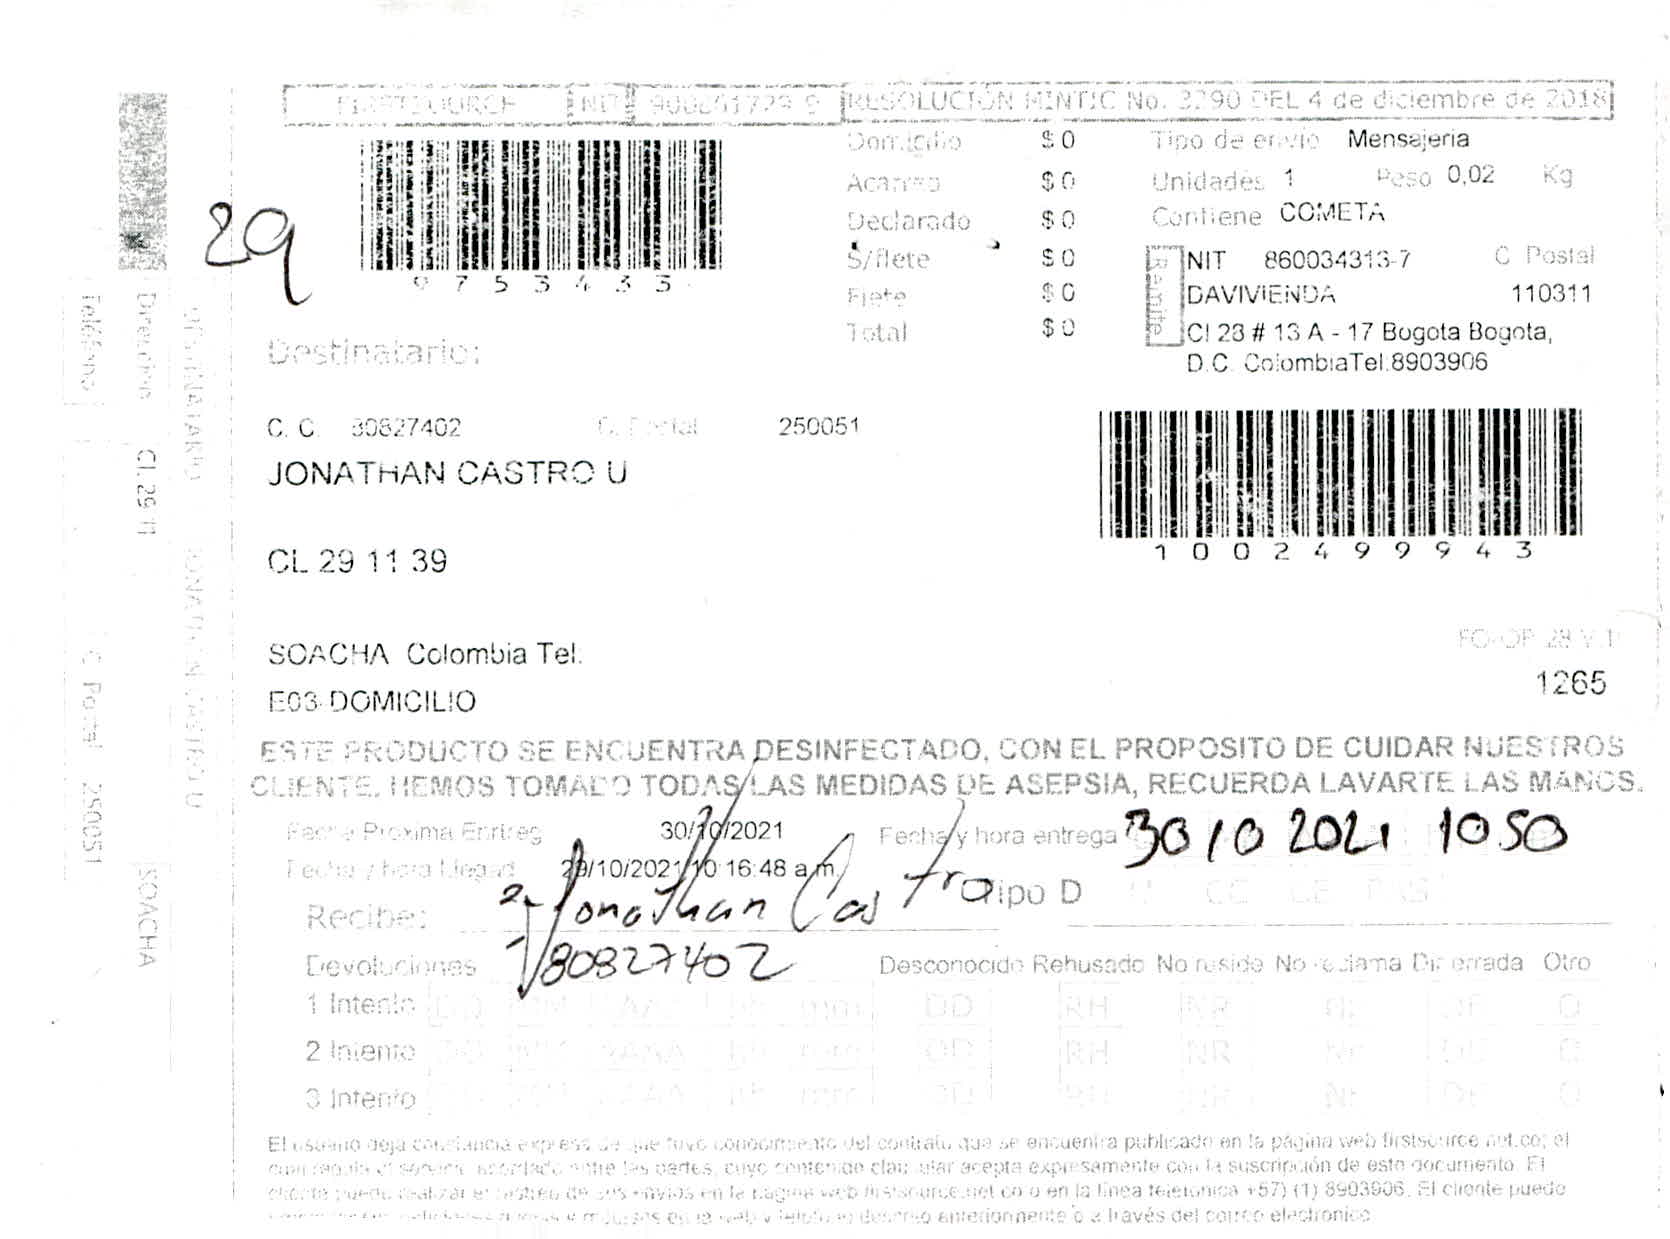 FIRSTSOURCE NIT RESOLUCIÓN MINTIC No. 3290 DEL 4 de diciembre de 2018
Domicilio $ 0 Tipo de envio Mensajeria
Acarreo $ 0 Unidades 1 Peso 0,02 Kg
Declarado $ 0 Contiene COMETA
S/flete $ 0
Flete $ 0
Total $ 0
29
9753433
Remite
NIT 860034313-7 C Postal
DAVIVIENDA 110311
Cl 28 # 13 A - 17 Bogota Bogota,
D.C. ColombiaTel:8903906
Destinatario:
C. C. 80827402 C. Postal 250051
JONATHAN CASTRO U
1002499943
CL 29 11 39
SOACHA Colombia Tel.
E03-DOMICILIO
FO-OP 28 V.1
1265
ESTE PRODUCTO SE ENCUENTRA DESINFECTADO, CON EL PROPOSITO DE CUIDAR NUESTROS
CLIENTE. HEMOS TOMADO TODAS LAS MEDIDAS DE ASEPSIA, RECUERDA LAVARTE LAS MANOS.
Fecha Proxima Entreg 30/10/2021 Fecha y hora entrega 30 10 2021 10 50
Fecha y hora Llegad 29/10/2021 10:16:48 a.m.
Recibe: Jonathan Castro Tipo D TI CC CE PAS
80827402
Devoluciones Desconocido Rehusado No reside No reclama Dir errada Otro
1 Intento DD MM AAAA hh mm DD RH NR Nr DE O
2 Intento DD MM AAAA hh mm DD RH NR Nr DE O
3 Intento DD MM AAAA hh mm DD RH NR Nr DE O
El usuario deja constancia expresa de que tuvo conocimiento del contrato que se encuentra publicado en la página web firstsource.net.co; el
cual regula el servicio acordado entre las partes, cuyo contenido clausular acepta expresamente con la suscripción de este documento. El
cliente puede realizar el rastreo de sus envios en la pagina web firstsource.net.co o en la línea telefonica +57) (1) 8903906. El cliente puede
en la web y telefono descrito anteriormente o a través del correo electronico
Teléfono
Direccion CL 29 11
DESTINATARIO JONATHAN CASTRO U
C. Postal 250051
SOACHA